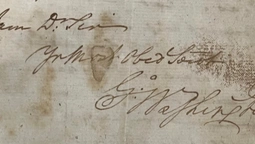 am Dr Sir
Yr M. Obed Servt
Go: Washington